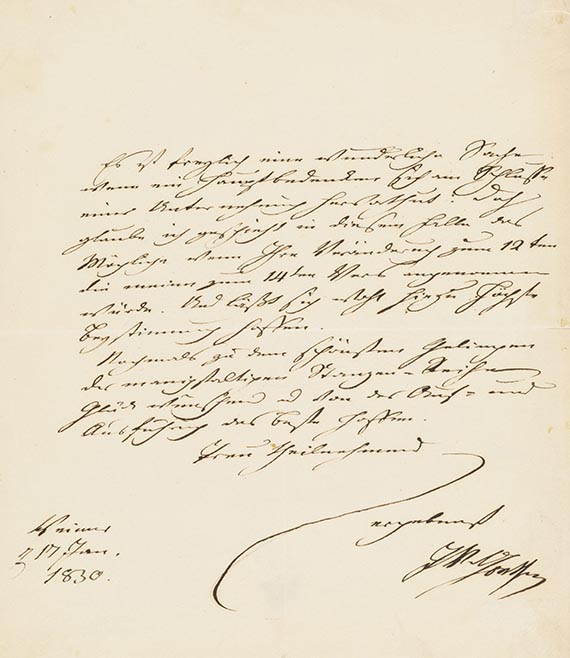 Es ist freylich eine wunderliche Sache
wenn ein Hauptbedenken sich am Schlusse
einer Unternehmung hervorthut: doch
glaube ich geschieht in diesem Falle das
Mögliche wenn Ihre Veränderung zum 12ten
die meine zum 14ten Vers angenommen
würde. Und läßt sich wohl hiezu Höchste
Beystimmung hoffen.
Nochmals zu dem schönsten Gelingen
der mannigfaltigen Stanzen-Reihe
Glück wünschend und von der Auf- und
Ausführung das beste hoffen.
treu theilnehmend
ergebenst
JWvGoethe
Weimar
17 Jan.
1830.